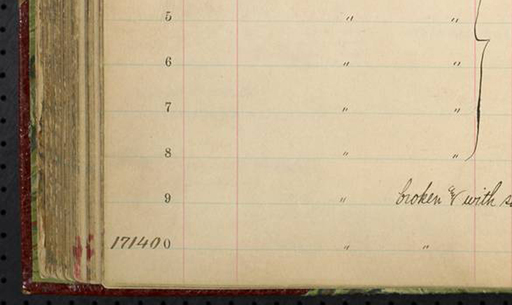 5 " "
6 " "
7 " "
8 " "
9 " broken & with
171400 " "